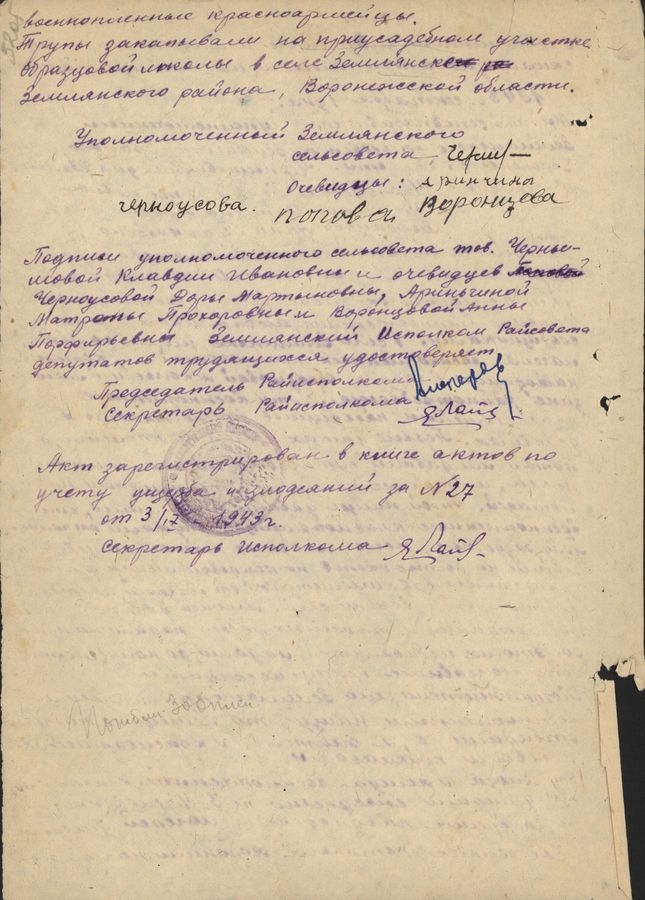 военнопленные красноармейцы.
Трупы закапывали на приусадебном участке
образцовой школы в селе Землянске
Землянского района, Воронежской области.
Уполномоченный Землянского
сельсовета
Очевидцы: Аринчина
Черноусова. Попова Воронцова
Подписи уполномоченного сельсовета тов.
мовой Клавдии Ивановны и очевидцев
Черноусовой Дарьи Мартыновны, Ариньчиной
Матроны Прохоровны и Воронцовой Анны
Порфирьевны Землянский Исполком Райсовета
депутатов трудящихся удостоверяет
Председатель Райисполкома
Секретарь Райисполкома
Акт зарегистрирован в книге актов по
учету ущерба и злодеяний за №27
от 3/IX - 1943 г.
Секретарь Исполкома